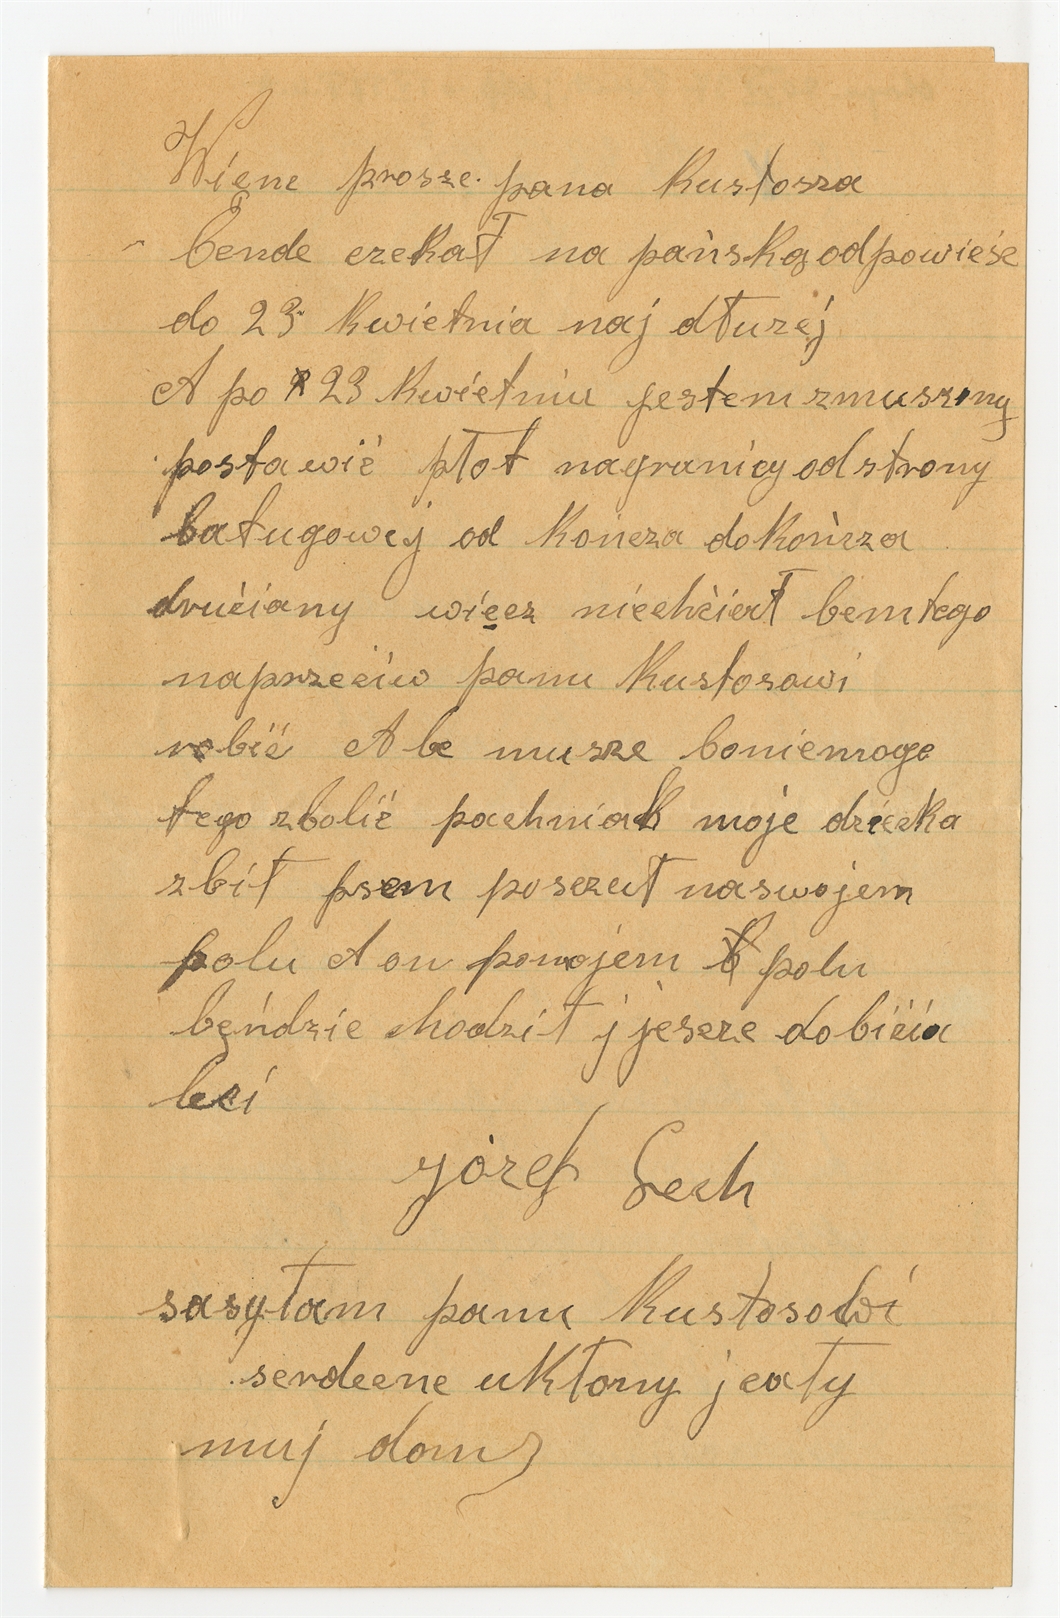 Wiene prosze pana Kustosza
bende czekał na pańską odpowieśc
do 23 Kwietnia naj dłużej
A po 23 Kwietniu jestem zmuszony
postawić płot nagranicy od strony
baługowej od Konca do Kończa
druciany więcz niechciał bemtego
naprzeciw panu Kustosowi
robić Abe musze boniemoge
tego zbolić pachniak moje dziecka
zbił psem poszczuł naswojem
polu A on pomojem polu
bęńdzie chodzit j jescze dobicia
beci
józef Lech
sasyłam panu Kustosowi
serdecne ukłony j cały
muj dom